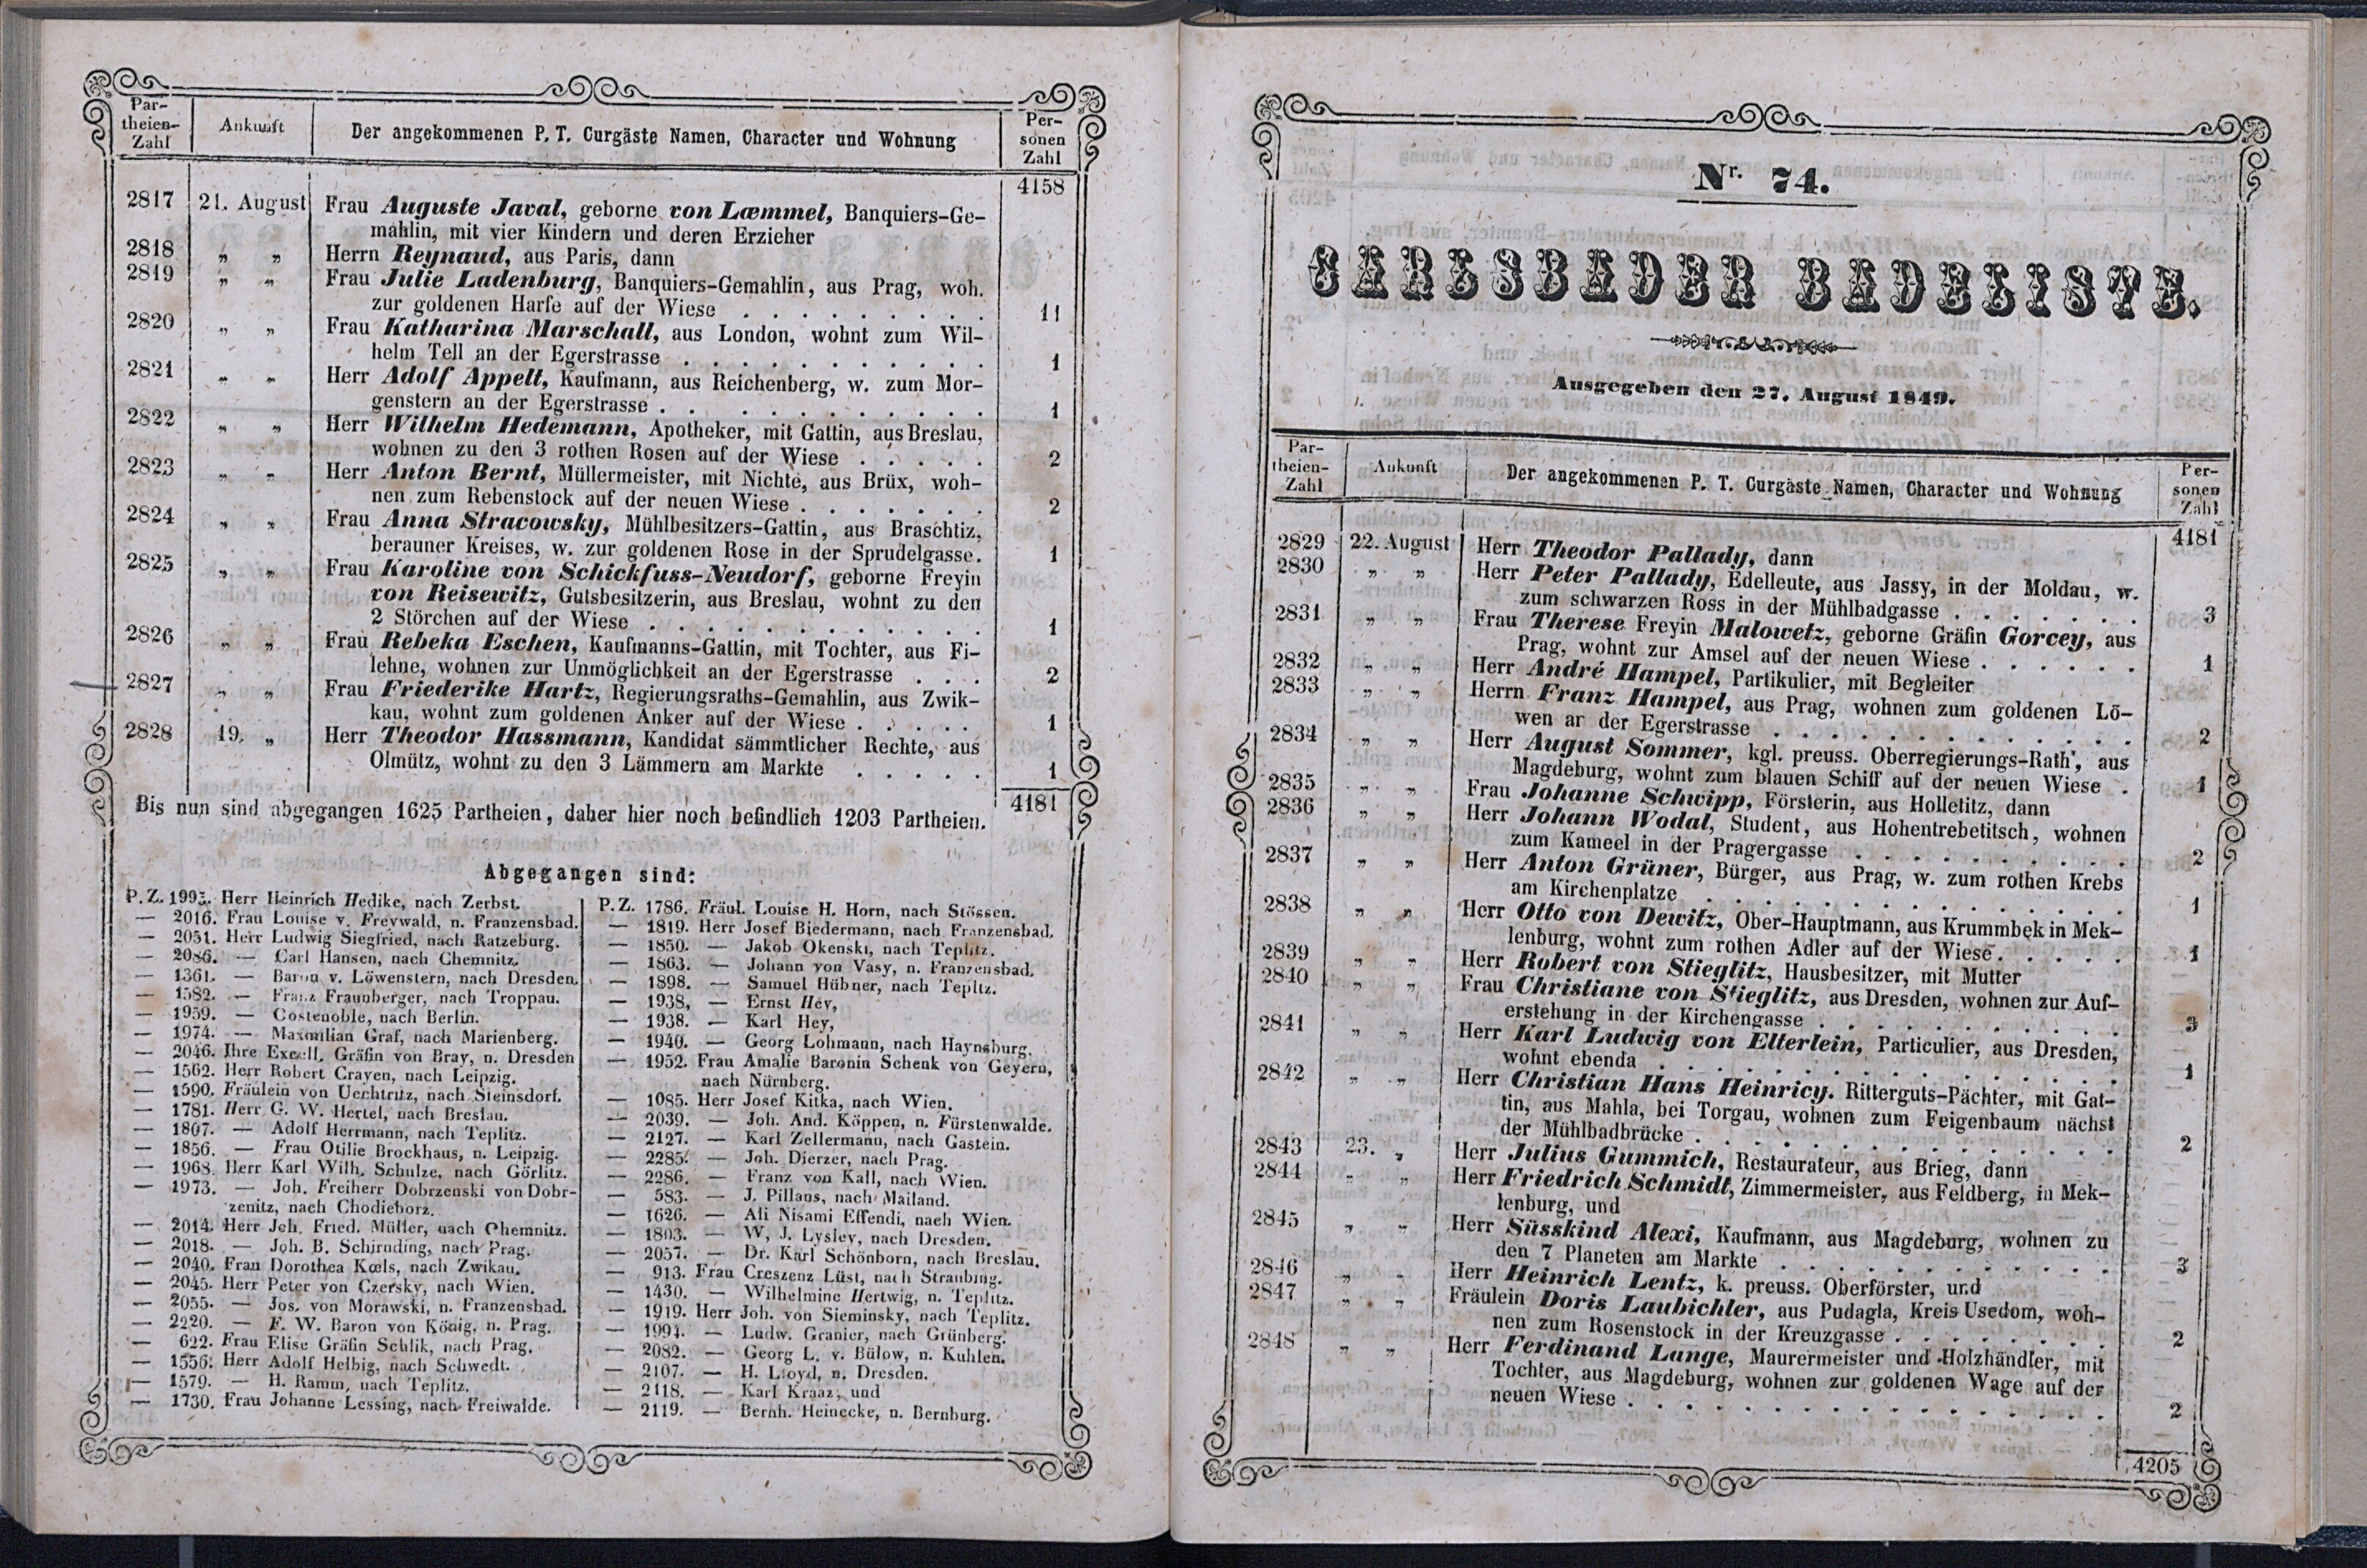 Par-
theien-
Zahl
Ankunft
Der angekommenen P. T. Curgäste Namen, Character und Wohnung
Per-
sonen
Zahl
4158
2817 21. August Frau Auguste Javal, geborne von Læmmel, Banquiers-Ge-
mahlin, mit vier Kindern und deren Erzieher
2818 „ „ Herrn Reynaud, aus Paris, dann
2819 „ „ Frau Julie Ladenburg, Banquiers-Gemahlin, aus Prag, woh.
zur goldenen Harfe auf der Wiese . . . . . . . . . 11
2820 „ „ Frau Katharina Marschall, aus London, wohnt zum Wil-
helm Tell an der Egerstrasse . . . . . . . . . . . 1
2821 „ „ Herr Adolf Appelt, Kaufmann, aus Reichenberg, w. zum Mor-
genstern an der Egerstrasse . . . . . . . . . . . 1
2822 „ „ Herr Wilhelm Hedemann, Apotheker, mit Gattin, aus Breslau,
wohnen zu den 3 rothen Rosen auf der Wiese . . . . . 2
2823 „ „ Herr Anton Bernt, Müllermeister, mit Nichte, aus Brüx, woh-
nen zum Rebenstock auf der neuen Wiese . . . . . . . 2
2824 „ „ Frau Anna Stracowsky, Mühlbesitzers-Gattin, aus Braschtiz,
berauner Kreises, w. zur goldenen Rose in der Sprudelgasse. 1
2825 „ „ Frau Karoline von Schickfuss-Neudorf, geborne Freyin
von Reisewitz, Gutsbesitzerin, aus Breslau, wohnt zu den
2 Störchen auf der Wiese . . . . . . . . . . . . 1
2826 „ „ Frau Rebeka Eschen, Kaufmanns-Gattin, mit Tochter, aus Fi-
lehne, wohnen zur Unmöglichkeit an der Egerstrasse . . . 2
2827 „ „ Frau Friederike Hartz, Regierungsraths-Gemahlin, aus Zwik-
kau, wohnt zum goldenen Anker auf der Wiese . . . . . 1
2828 19. „ Herr Theodor Hassmann, Kandidat sämmtlicher Rechte, aus
Olmütz, wohnt zu den 3 Lämmern am Markte . . . . . 1
4181
Bis nun sind abgegangen 1625 Partheien, daher hier noch befindlich 1203 Partheien.
Abgegangen sind:
P. Z. 1995. Herr Heinrich Hedike, nach Zerbst.
— 2016. Frau Louise v. Freywald, n. Franzensbad.
— 2051. Herr Ludwig Siegfried, nach Ratzeburg.
— 2086. — Carl Hansen, nach Chemnitz.
— 1361. — Baron v. Löwenstern, nach Dresden.
— 1582. — Franz Fraunberger, nach Troppau.
— 1959. — Costenoble, nach Berlin.
— 1974. — Maxmilian Graf, nach Marienberg.
— 2046. Ihre Excell. Gräfin von Bray, n. Dresden
— 1562. Herr Robert Crayen, nach Leipzig.
— 1590. Fräulein von Uechtritz, nach Steinsdorf.
— 1781. Herr G. W. Hertel, nach Breslau.
— 1807. — Adolf Herrmann, nach Teplitz.
— 1856. — Frau Otilie Brockhaus, n. Leipzig.
— 1968. Herr Karl Wilh. Schulze, nach Görlitz.
— 1973. — Joh. Freiherr Dobrzenski von Dobr-
zenitz, nach Chodieborz.
— 2014. Herr Joh. Fried. Müller, nach Chemnitz.
— 2018. — Joh. B. Schirnding, nach Prag.
— 2040. Frau Dorothea Kœls, nach Zwikau.
— 2045. Herr Peter von Czersky, nach Wien.
— 2055. — Jos. von Morawski, n. Franzensbad.
— 2220. — F. W. Baron von König, n. Prag.
— 622. Frau Elise Gräfin Schlik, nach Prag.
— 1556. Herr Adolf Helbig, nach Schwedt.
— 1579. — H. Ramm, nach Teplitz.
— 1730. Frau Johanne Lessing, nach Freiwalde.
P. Z. 1786. Fräul. Louise H. Horn, nach Stössen.
— 1819. Herr Josef Biedermann, nach Franzensbad.
— 1850. — Jakob Okenski, nach Teplitz.
— 1863. — Johann von Vasy, n. Franzensbad.
— 1898. — Samuel Hübner, nach Tepltz.
— 1938, — Ernst Hey,
— 1938. — Karl Hey,
— 1940. — Georg Lohmann, nach Haynsburg.
— 1952. Frau Amalie Baronin Schenk von Geyern,
nach Nürnberg.
— 1085. Herr Josef Kitka, nach Wien.
— 2039. — Joh. And. Köppen, n. Fürstenwalde.
— 2127. — Karl Zellermann, nach Gastein.
— 2285. — Joh. Dierzer, nach Prag.
— 2286. — Franz von Kall, nach Wien.
— 583. — J. Pillans, nach Mailand.
— 1626. — Ali Nisami Effendi, nach Wien.
— 1803. — W, J. Lysley, nach Dresden.
— 2057. — Dr. Karl Schönborn, nach Breslau.
— 913. Frau Creszenz Lüst, nach Straubing.
— 1430. — Wilhelmine Hertwig, n. Teplitz.
— 1919. Herr Joh. von Sieminsky, nach Teplitz.
— 1994. — Ludw. Granier, nach Grünberg.
— 2082. — Georg L. v. Bülow, n. Kuhlen.
— 2107. — H. Lloyd, n. Dresden.
— 2118. — Karl Kraaz, und
— 2119. — Bernh. Heinecke, n. Bernburg.
Nr. 74.
CARLSBADER BADELISTE.
Ausgegeben den 27. August 1849.
Par-
theien-
Zahl
Ankunft
Der angekommenen P. T. Curgäste Namen, Character und Wohnung
Per-
sonen
Zahl
4181
2829 22. August Herr Theodor Pallady, dann
2830 „ „ Herr Peter Pallady, Edelleute, aus Jassy, in der Moldau, w.
zum schwarzen Ross in der Mühlbadgasse . . . . . . . 3
2831 „ „ Frau Therese Freyin Malowetz, geborne Gräfin Gorcey, aus
Prag, wohnt zur Amsel auf der neuen Wiese . . . . . . 1
2832 „ „ Herr André Hampel, Partikulier, mit Begleiter
2833 „ „ Herrn Franz Hampel, aus Prag, wohnen zum goldenen Lö-
wen ar der Egerstrasse . . . . . . . . . . . . . 2
2834 „ „ Herr August Sommer, kgl. preuss. Oberregierungs-Rath, aus
Magdeburg, wohnt zum blauen Schiff auf der neuen Wiese . 1
2835 „ „ Frau Johanne Schwipp, Försterin, aus Holletitz, dann
2836 „ „ Herr Johann Wodal, Student, aus Hohentrebetitsch, wohnen
zum Kameel in der Pragergasse . . . . . . . . . . 2
2837 „ „ Herr Anton Grüner, Bürger, aus Prag, w. zum rothen Krebs
am Kirchenplatze . . . . . . . . . . . . . . . 1
2838 „ „ Herr Otto von Dewitz, Ober-Hauptmann, aus Krummbek in Mek-
lenburg, wohnt zum rothen Adler auf der Wiese . . . . . 1
2839 „ „ Herr Robert von Stieglitz, Hausbesitzer, mit Mutter
2840 „ „ Frau Christiane von Stieglitz, aus Dresden, wohnen zur Auf-
erstehung in der Kirchengasse . . . . . . . . . . . 3
2841 „ „ Herr Karl Ludwig von Elterlein, Particulier, aus Dresden,
wohnt ebenda . . . . . . . . . . . . . . . . 1
2842 „ „ Herr Christian Hans Heinricy. Ritterguts-Pächter, mit Gat-
tin, aus Mahla, bei Torgau, wohnen zum Feigenbaum nächst
der Mühlbadbrücke . . . . . . . . . . . . . . . 2
2843 23. „ Herr Julius Gummich, Restaurateur, aus Brieg, dann
2844 „ „ Herr Friedrich Schmidt, Zimmermeister, aus Feldberg, in Mek-
lenburg, und
2845 „ „ Herr Süsskind Alexi, Kaufmann, aus Magdeburg, wohnen zu
den 7 Planeten am Markte . . . . . . . . . . . . 3
2846 „ „ Herr Heinrich Lentz, k. preuss. Oberförster, und
2847 „ „ Fräulein Doris Laubichler, aus Pudagla, Kreis Usedom, woh-
nen zum Rosenstock in der Kreuzgasse . . . . . . . . 2
2848 „ „ Herr Ferdinand Lange, Maurermeister und Holzhändler, mit
Tochter, aus Magdeburg, wohnen zur goldenen Wage auf der
neuen Wiese . . . . . . . . . . . . . . . . . 2
4205